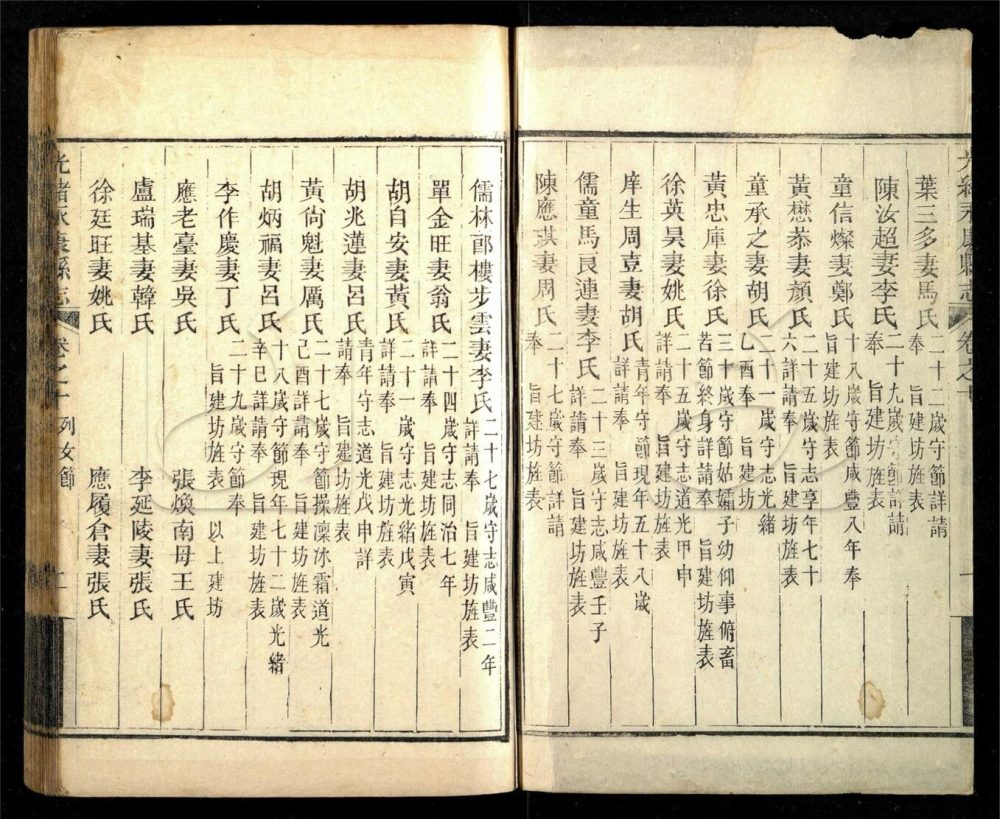 光緒永康縣志 卷之十
葉三多妻馬氏 二十二歲守節詳請奉 旨建坊旌表
陳汝超妻李氏 二十九歲守節詳請奉 旨建坊旌表
童信燦妻鄭氏 十八歲守節咸豐八年奉 旨建坊旌表
黃懋恭妻顏氏 二十五歲守志享年七十六詳請奉 旨建坊旌表
童承之妻胡氏 二十一歲守志光緒乙酉奉 旨建坊
黃忠庫妻徐氏 三十歲守節姑孀子幼仰事俯畜若節終身詳請奉 旨建坊旌表
徐英昊妻姚氏 二十五歲守志道光甲申詳請奉 旨建坊旌表
庠生周壴妻胡氏 青年守節現年五十八歲詳請奉 旨建坊旌表
儒童馬良連妻李氏 二十三歲守志咸豐壬子詳請奉 旨建坊旌表
陳應琪妻周氏 二十七歲守節詳請奉 旨建坊旌表
儒林郎樓步雲妻李氏 二十七歲守志咸豐二年詳請奉 旨建坊旌表
單金旺妻翁氏 二十四歲守志同治七年詳請奉 旨建坊旌表
胡自安妻黃氏 二十一歲守志光緒戊寅詳請奉 旨建坊旌表
胡兆蓮妻呂氏 青年守志道光戊申詳請奉 旨建坊旌表
黃尙魁妻厲氏 二十七歲守節操凜冰霜道光己酉詳請奉 旨建坊旌表
胡炳福妻呂氏 十八歲守節現年七十二歲光緒辛巳詳請奉 旨建坊旌表
李作慶妻丁氏 二十九歲守節奉 旨建坊旌表 以上建坊
應老臺妻吳氏 張煥南母王氏
盧瑞基妻韓氏 李延陵妻張氏
徐廷旺妻姚氏 應履倉妻張氏
光緒永康縣志 卷之十 列女節 二